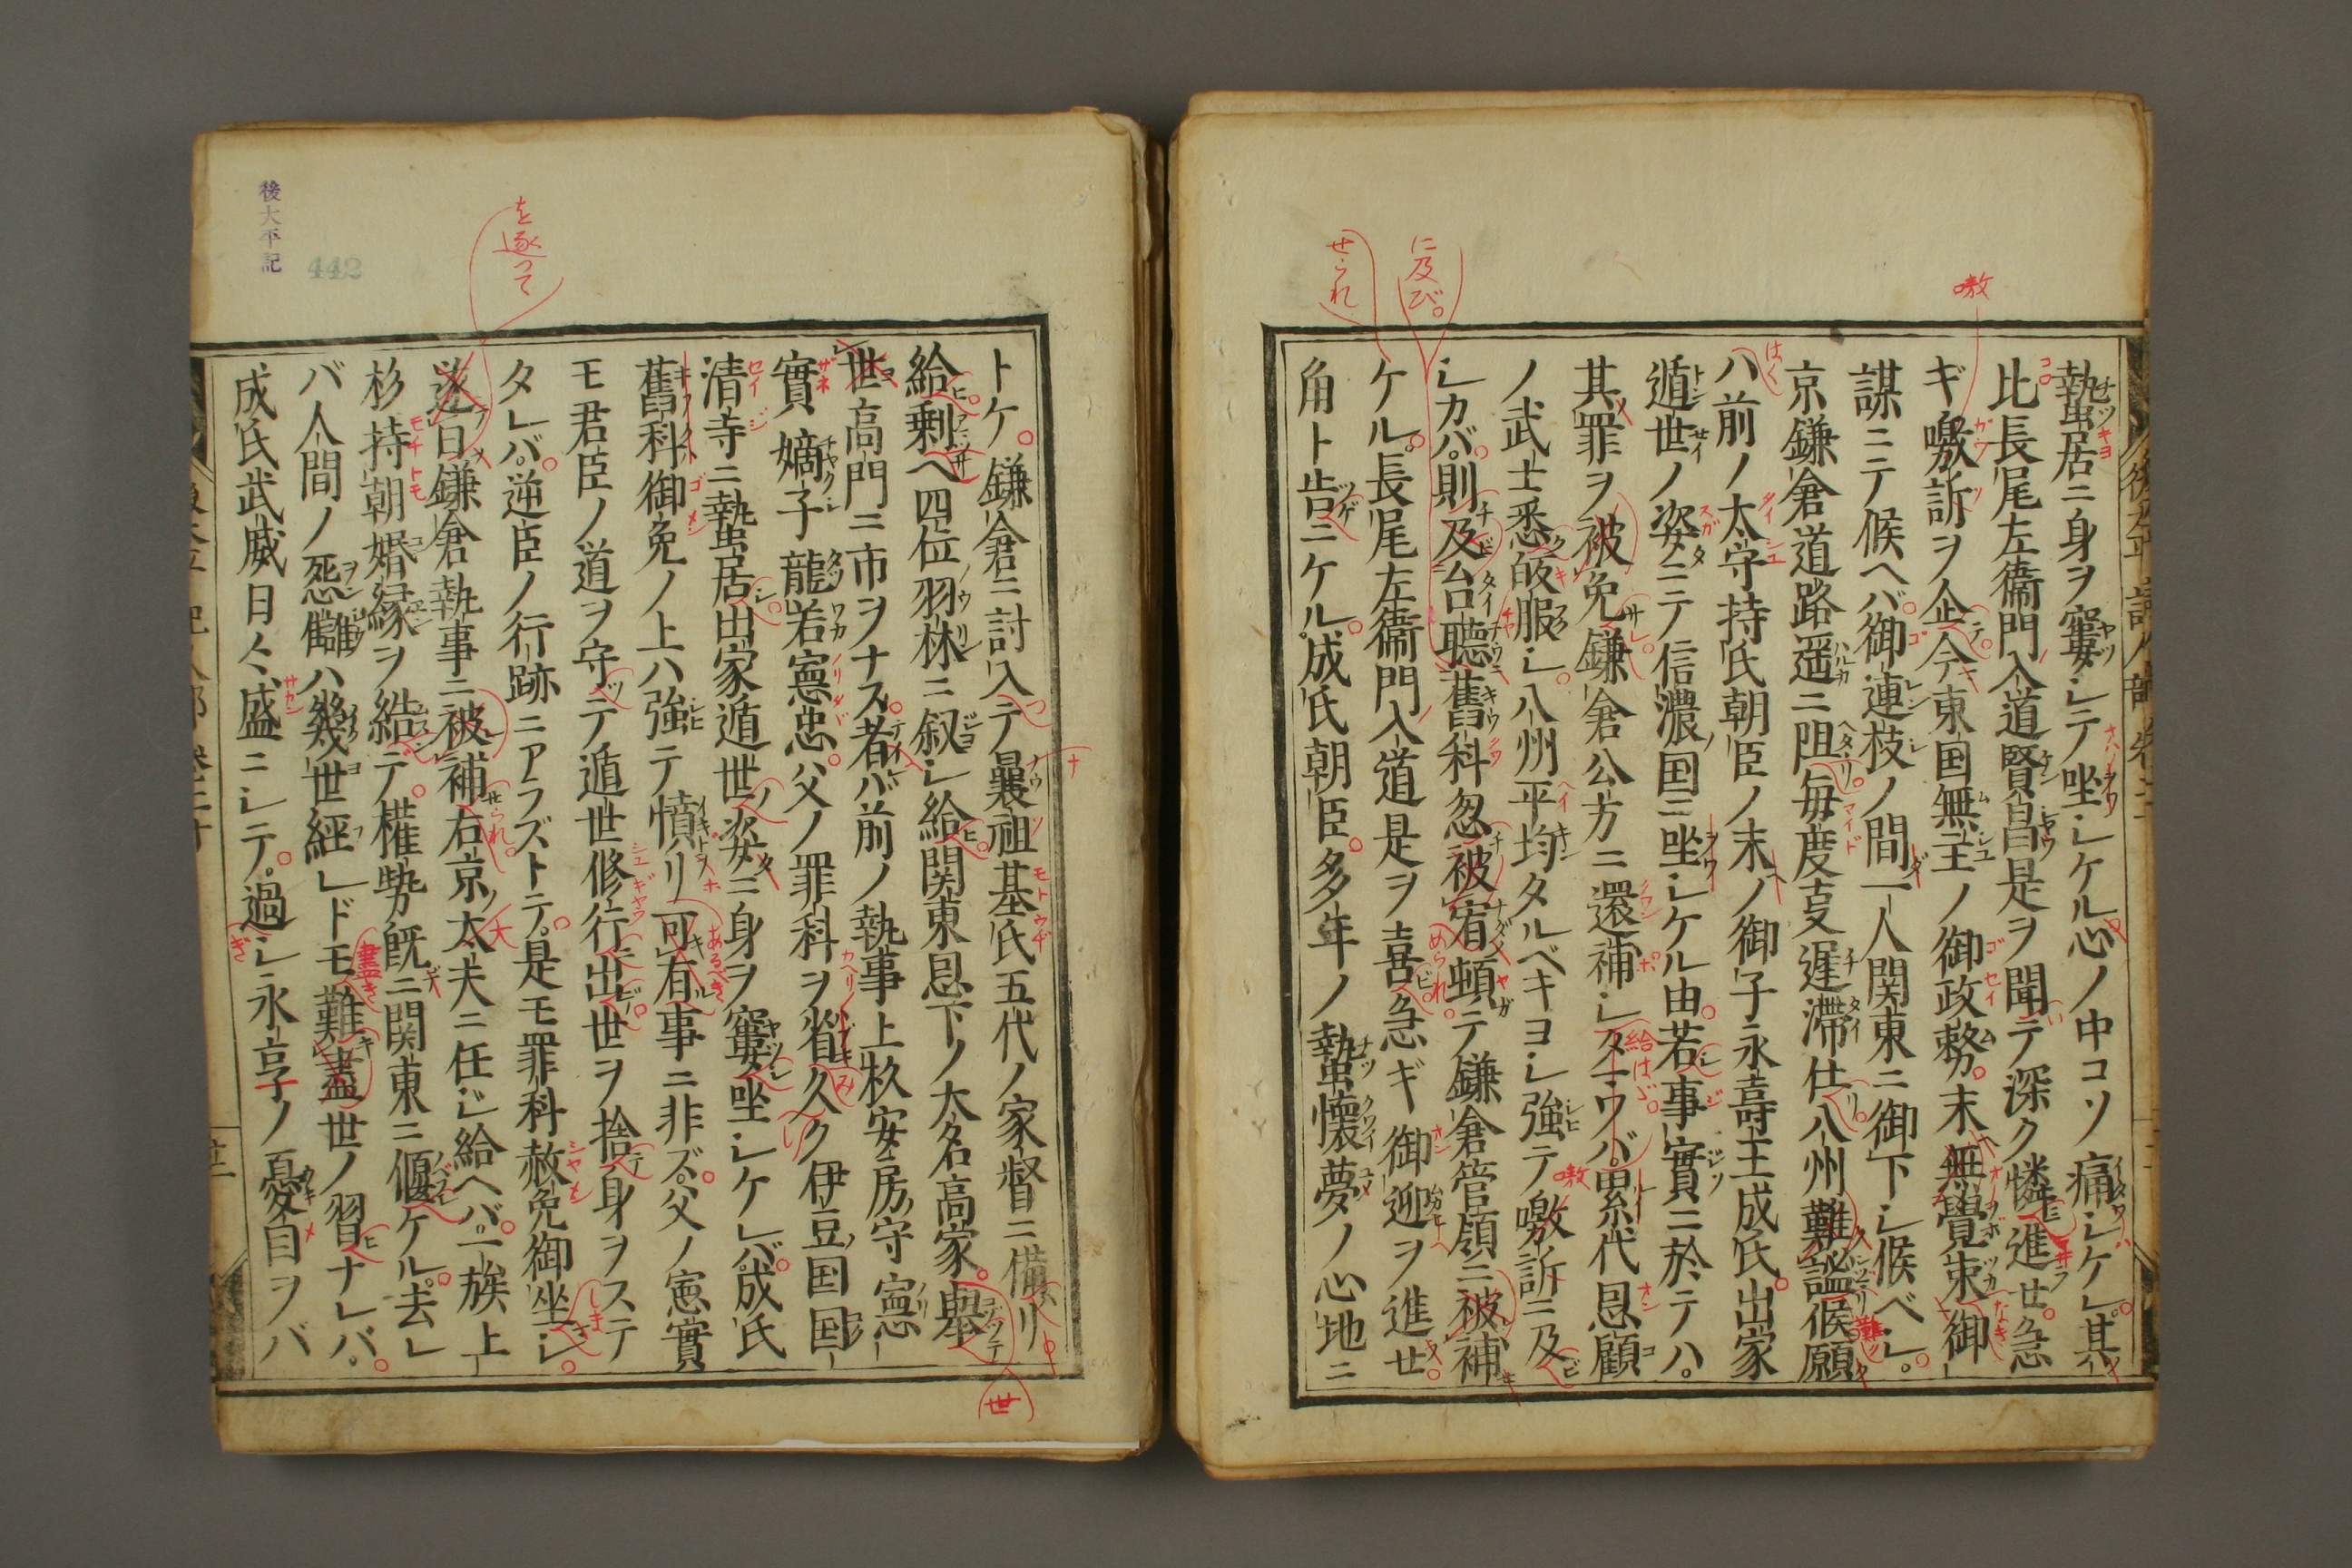 蟄居ニ身ヲ窶シテ坐シケル心ノ中コソ痛シケレ其
比長尾左衞門入道賢昌是ヲ聞テ深ク憐進セ急
ギ嗷訴ヲ企今東国無主ノ御政務末無覺束御
謀ニテ候ヘバ御連枝ノ間一人関東ニ御下シ候ベシ
京鎌倉道路遥ニ阻毎度支遲滯仕八州難謐候願
ハ前ノ太守持氏朝臣ノ末ノ御子永壽王成氏出家
遁世ノ姿ニテ信濃国ニ坐シケル由若事實ニ於テハ
其罪ヲ被免鎌倉公方ニ還補シタマウバ累代恩顧
ノ武士悉皈服シ八州平均タルベキヨシ強テ嗷訴ニ及
シカバ則及台聽舊科忽被宥頓テ鎌倉管領ニ被補
ケル長尾左衞門入道是ヲ喜急ギ御迎ヲ進セ
角ト告ニケル成氏朝臣多年ノ蟄懐夢ノ心地ニ
嗷
に及び。
せられ
トケ鎌倉ニ討入テ曩祖基氏五代ノ家督ニ備リ
給剰ヘ四位羽林ニ叙シ給関東恩下ノ大名高家擧
世高門ニ市ヲナス者バ前ノ執事上杦安房守憲
實嫡子龍若憲忠父ノ罪科ヲ省久ク伊豆国国
清寺ニ蟄居出家遁世姿ニ身ヲ窶坐シケレバ成氏
舊科御免ノ上ハ強テ憤リ可有事ニ非ズ父ノ憲實
モ君臣ノ道ヲ守テ遁世修行出世ヲ捨身ヲステ
タレバ逆臣ノ行跡ニアラズトテ是モ罪科赦免御坐シ
逐日鎌倉執事ニ被補右京太夫ニ任ジ給ヘバ一族上
杉持朝婚縁ヲ結テ權勢既ニ関東ニ偃ケル去レ
バ人間ノ怨讎ハ幾世經レドモ難盡世ノ習ナレバ
成氏武威日々盛ニシテ過シ永享ノ憂目ヲバ
を逐つて
世
後太平記
442